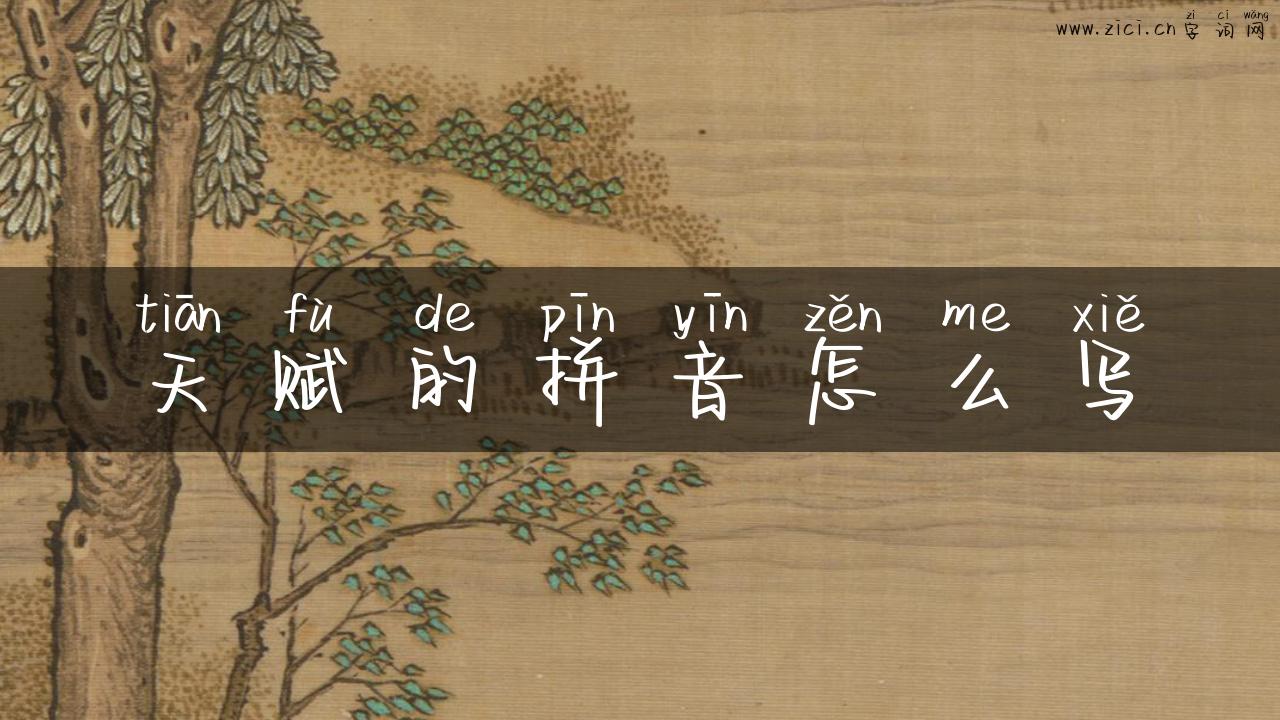 zì cí wǎng
www.zici.cn 字词网
tiān fù de pīn yīn zěn me xiě
天赋的拼音怎么写